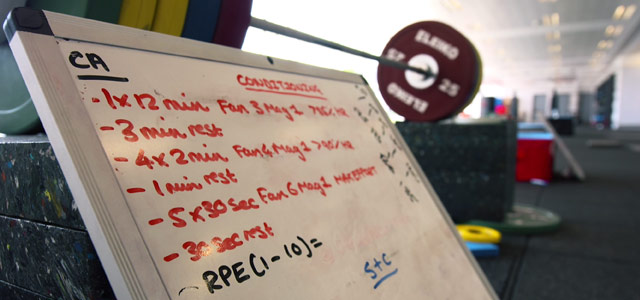 CA
CONDITIONING
- 1x12 min Fan 3 Mag 1 >75% HR
- 3 min rest
- 4x2 min Fan 4 Mag 1 >90% HR
- 1 min rest
- 5x30 sec Fan 6 Mag 1 MAX EFFORT
- 30 sec rest
- RPE (1-10) =
S+C
ELEIKO
25
25
ELEIKO